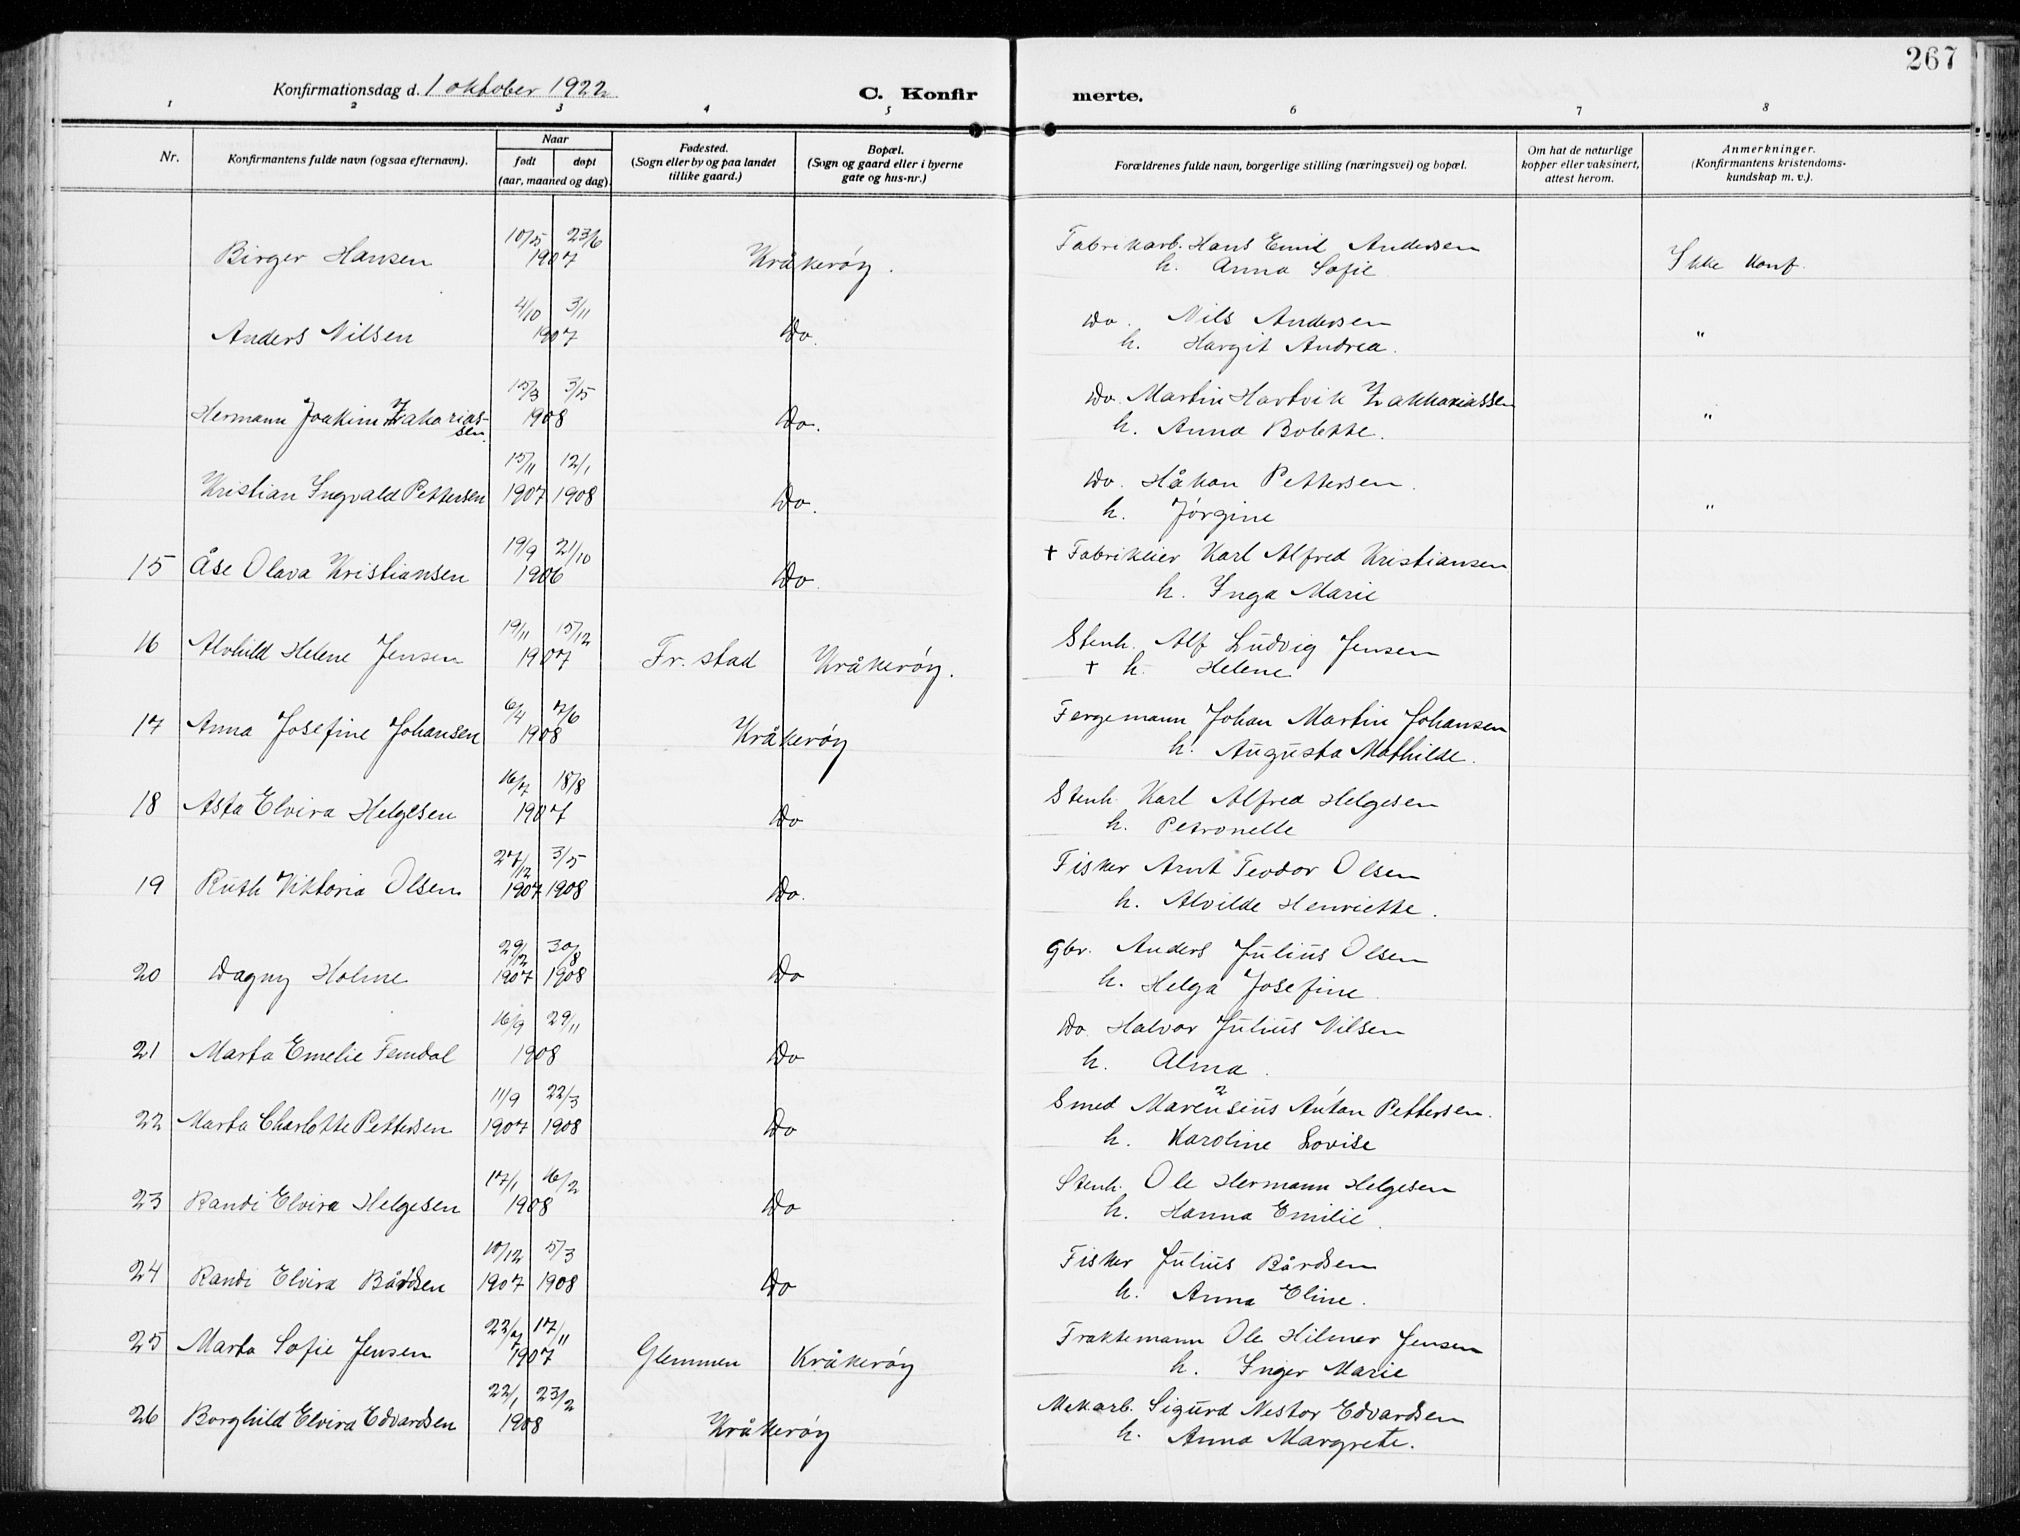 267
Konfirmationsdag d. 1 oktober 1922
C. Konfir merte.
1 2 3 4 5 6 7 8
Nr.
Konfirmantens fulde navn (ogsaa efternavn).
Naar
født døpt
(aar, maaned og dag).
Fødested.
(Sogn eller by og paa landet
tillike gaard.)
Bopæl.
(Sogn og gaard eller i byerne
gate og hus-nr.)
Forældrenes fulde navn, borgerlige stilling (næringsvei) og bopæl.
Om hat de naturlige
kopper eller vaksinert,
attest herom.
Anmerkninger.
(Konfirmantens kristendoms-
kundskap m. v.).
10/5 23/6 Fabrikarb. Hans Emil Andersen
Birger Hansen 1907 Kråkerøy. h. Anna Sofie Ikke konf.
4/10 3/11 Do. Nils Andersen
Anders Nilsen 1907 Do. h. Hargit Andrea. "
15/3 3/5 Do. Martin Hartvik Zakkariassen
Hermann Joakim Zakarias- 1908 Do. h. Anna Bolette. "
sen.
15/11 12/1 Do. Håkon Pettersen.
Kristian Ingvald Pettersen 1907 1908 Do. h. Jørgine "
19/9 21/10 † Fabrikeier Karl Alfred Kristiansen
15 Åse Olava Kristiansen 1906 Do. h. Inga Marie
19/11 15/12 Stenh. Alf Ludvig Jensen
16 Alvhild Helene Jensen 1907 Fr. stad Kråkerøy. † h. Helene
6/4 7/6 Fergemann Johan Martin Johansen
17 Anna Josefine Johansen 1908 Kråkerøy h. Augusta Mathilde.
16/7 18/8 Stenh. Karl Alfred Helgesen
18 Asta Elvira Helgesen 1907 Do h. Petronelle
27/12 3/5 Fisker Arnt Teodor Olsen
19 Ruth Viktoria Olsen 1907 1908 Do. h. Alvilde Henriette.
29/12 30/8 Gbr. Anders Julius Olsen
20 Dagny Holme 1907 1908 Do h. Helga Josefine.
16/9 29/11 Do. Halvor Julius Nilsen
21 Marta Emelie Femdal 1908 Do h. Alma.
11/9 22/3 Smed Marensius Anton Pettersen.
22 Marta Charlotte Pettersen 1907 1908 Do h. Karoline Lovise
17/1 16/2 Stenh. Ole Hermann Helgesen
23 Randi Elvira Helgesen 1908 Do h. Hanna Emilie.
10/12 5/3 Fisker Julius Bårdsen
24 Randi Elvira Bårdsen 1907 1908 Do h. Anna Eline.
22/7 17/11 Fraktemann Ole Hilmer Jensen
25 Marta Sofie Jensen 1907 Glemmen Kråkerøy h. Inger Marie
22/1 23/2 Mekarb. Sigurd Nestor Edvardsen
26 Borghild Elvira Edvardsen 1908 Kråkerøy h. Anna Margrete.